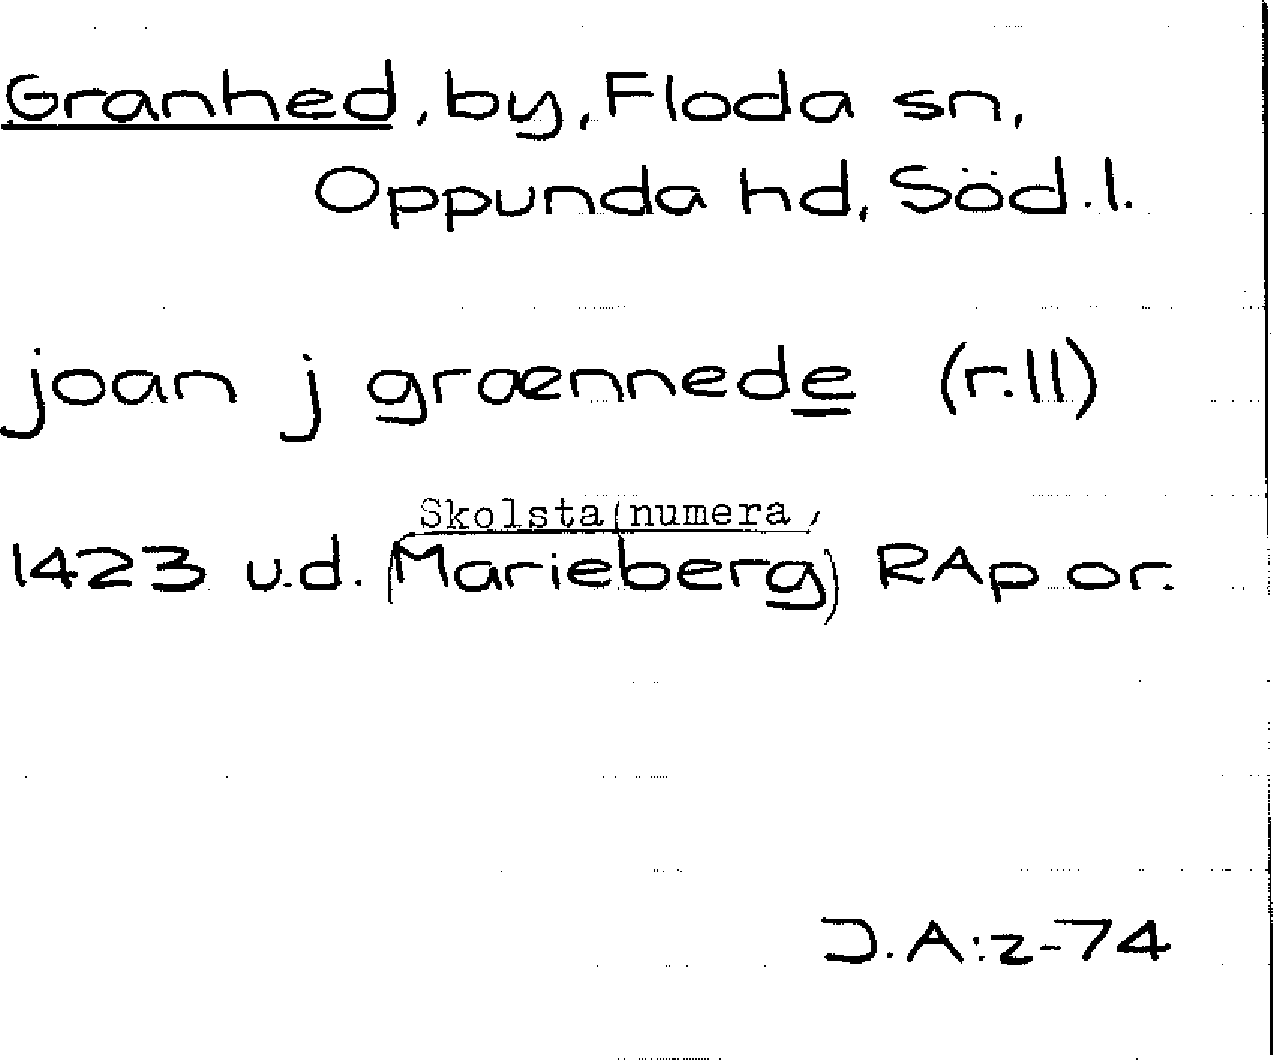 Granhed, by, Floda sn,
Oppunda hd, Söd. l.
joan j grænnede (r.11)
Skolsta (numera,
1423 u.d. (Marieberg) RAp or.
J.A:z-74